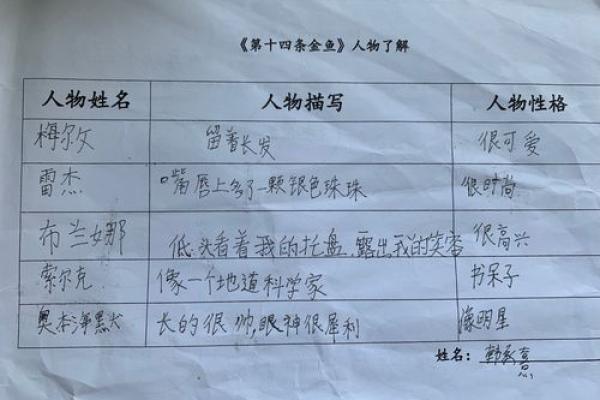 《第十四条金鱼》人物了解
人物姓名 人物描写 人物性格
梅尔文 留着长发 很可爱
雷杰 嘴唇上多了一颗银色珠珠 很时尚
布兰娜 低头看着我的托盘,露出我的笑容 很高兴
索尔克 像一个地道科学家 书呆子
奥本海黑犬 长的很帅,眼神很犀利 像明星
姓名:韩